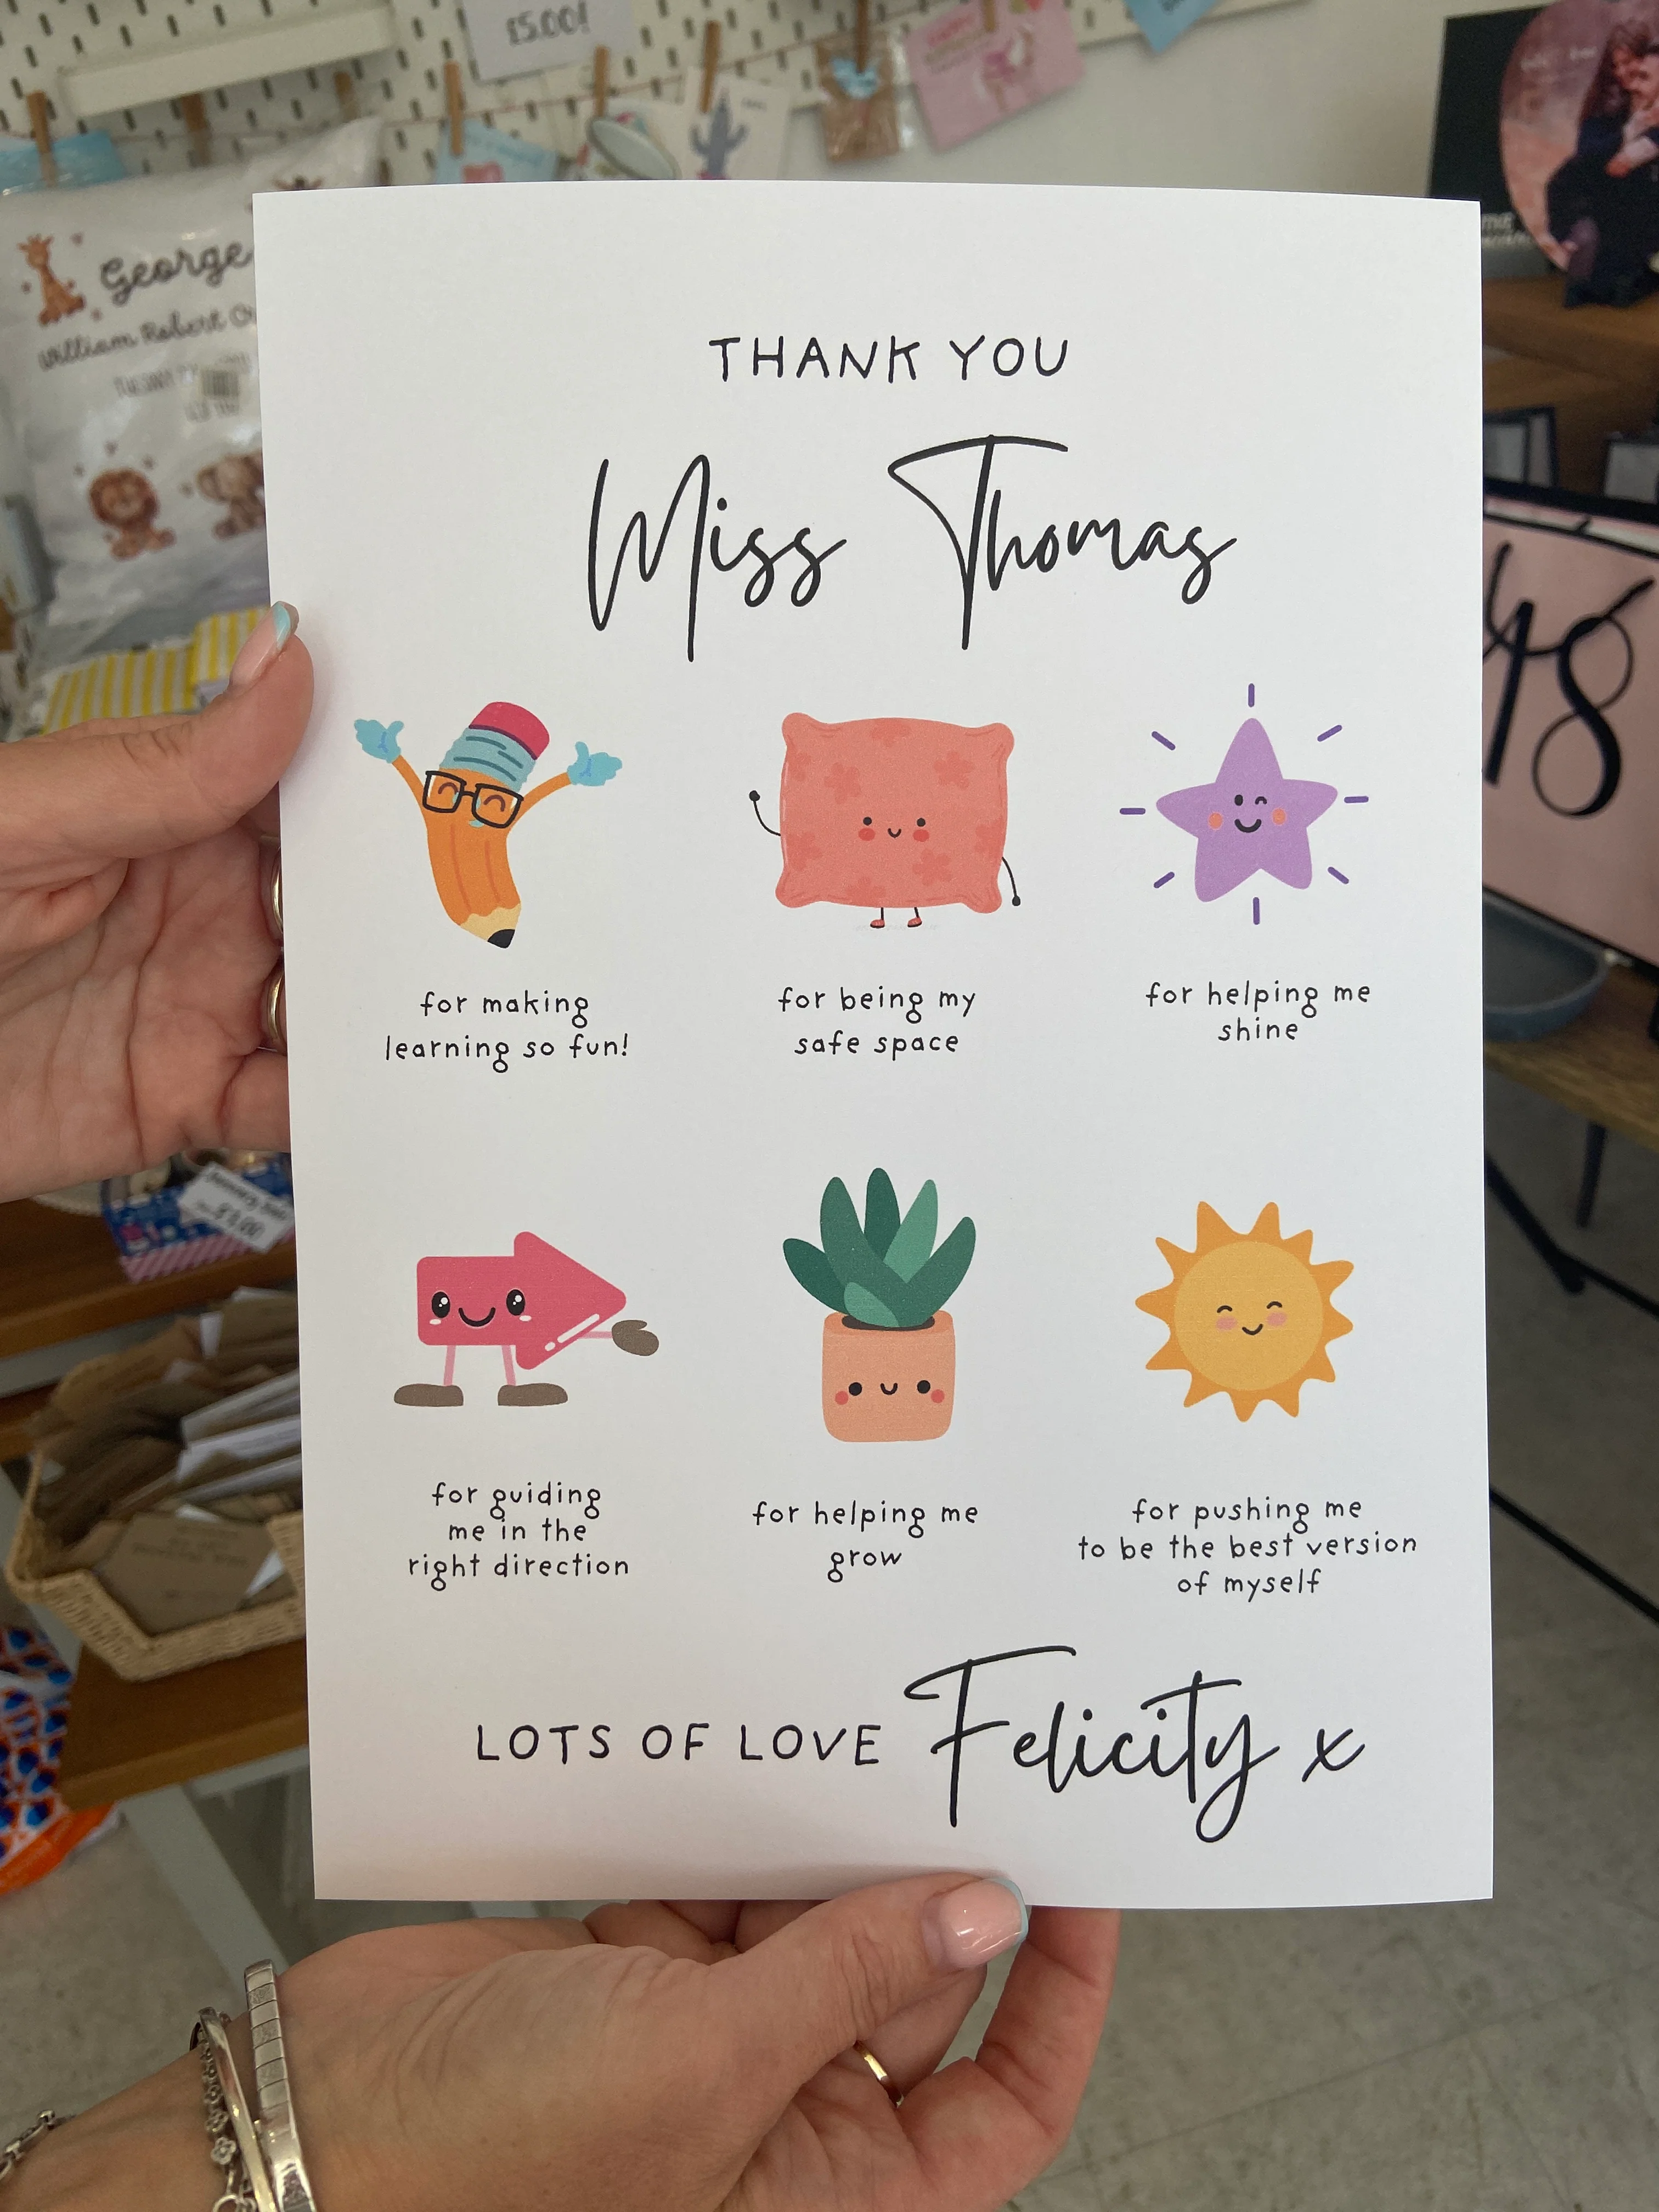 £5.00!
George
William Robert
THANK YOU
Miss Thomas
for making
learning so fun!
for being my
safe space
for helping me
shine
for guiding
me in the
right direction
for helping me
grow
for pushing me
to be the best version
of myself
LOTS OF LOVE Felicity x
48